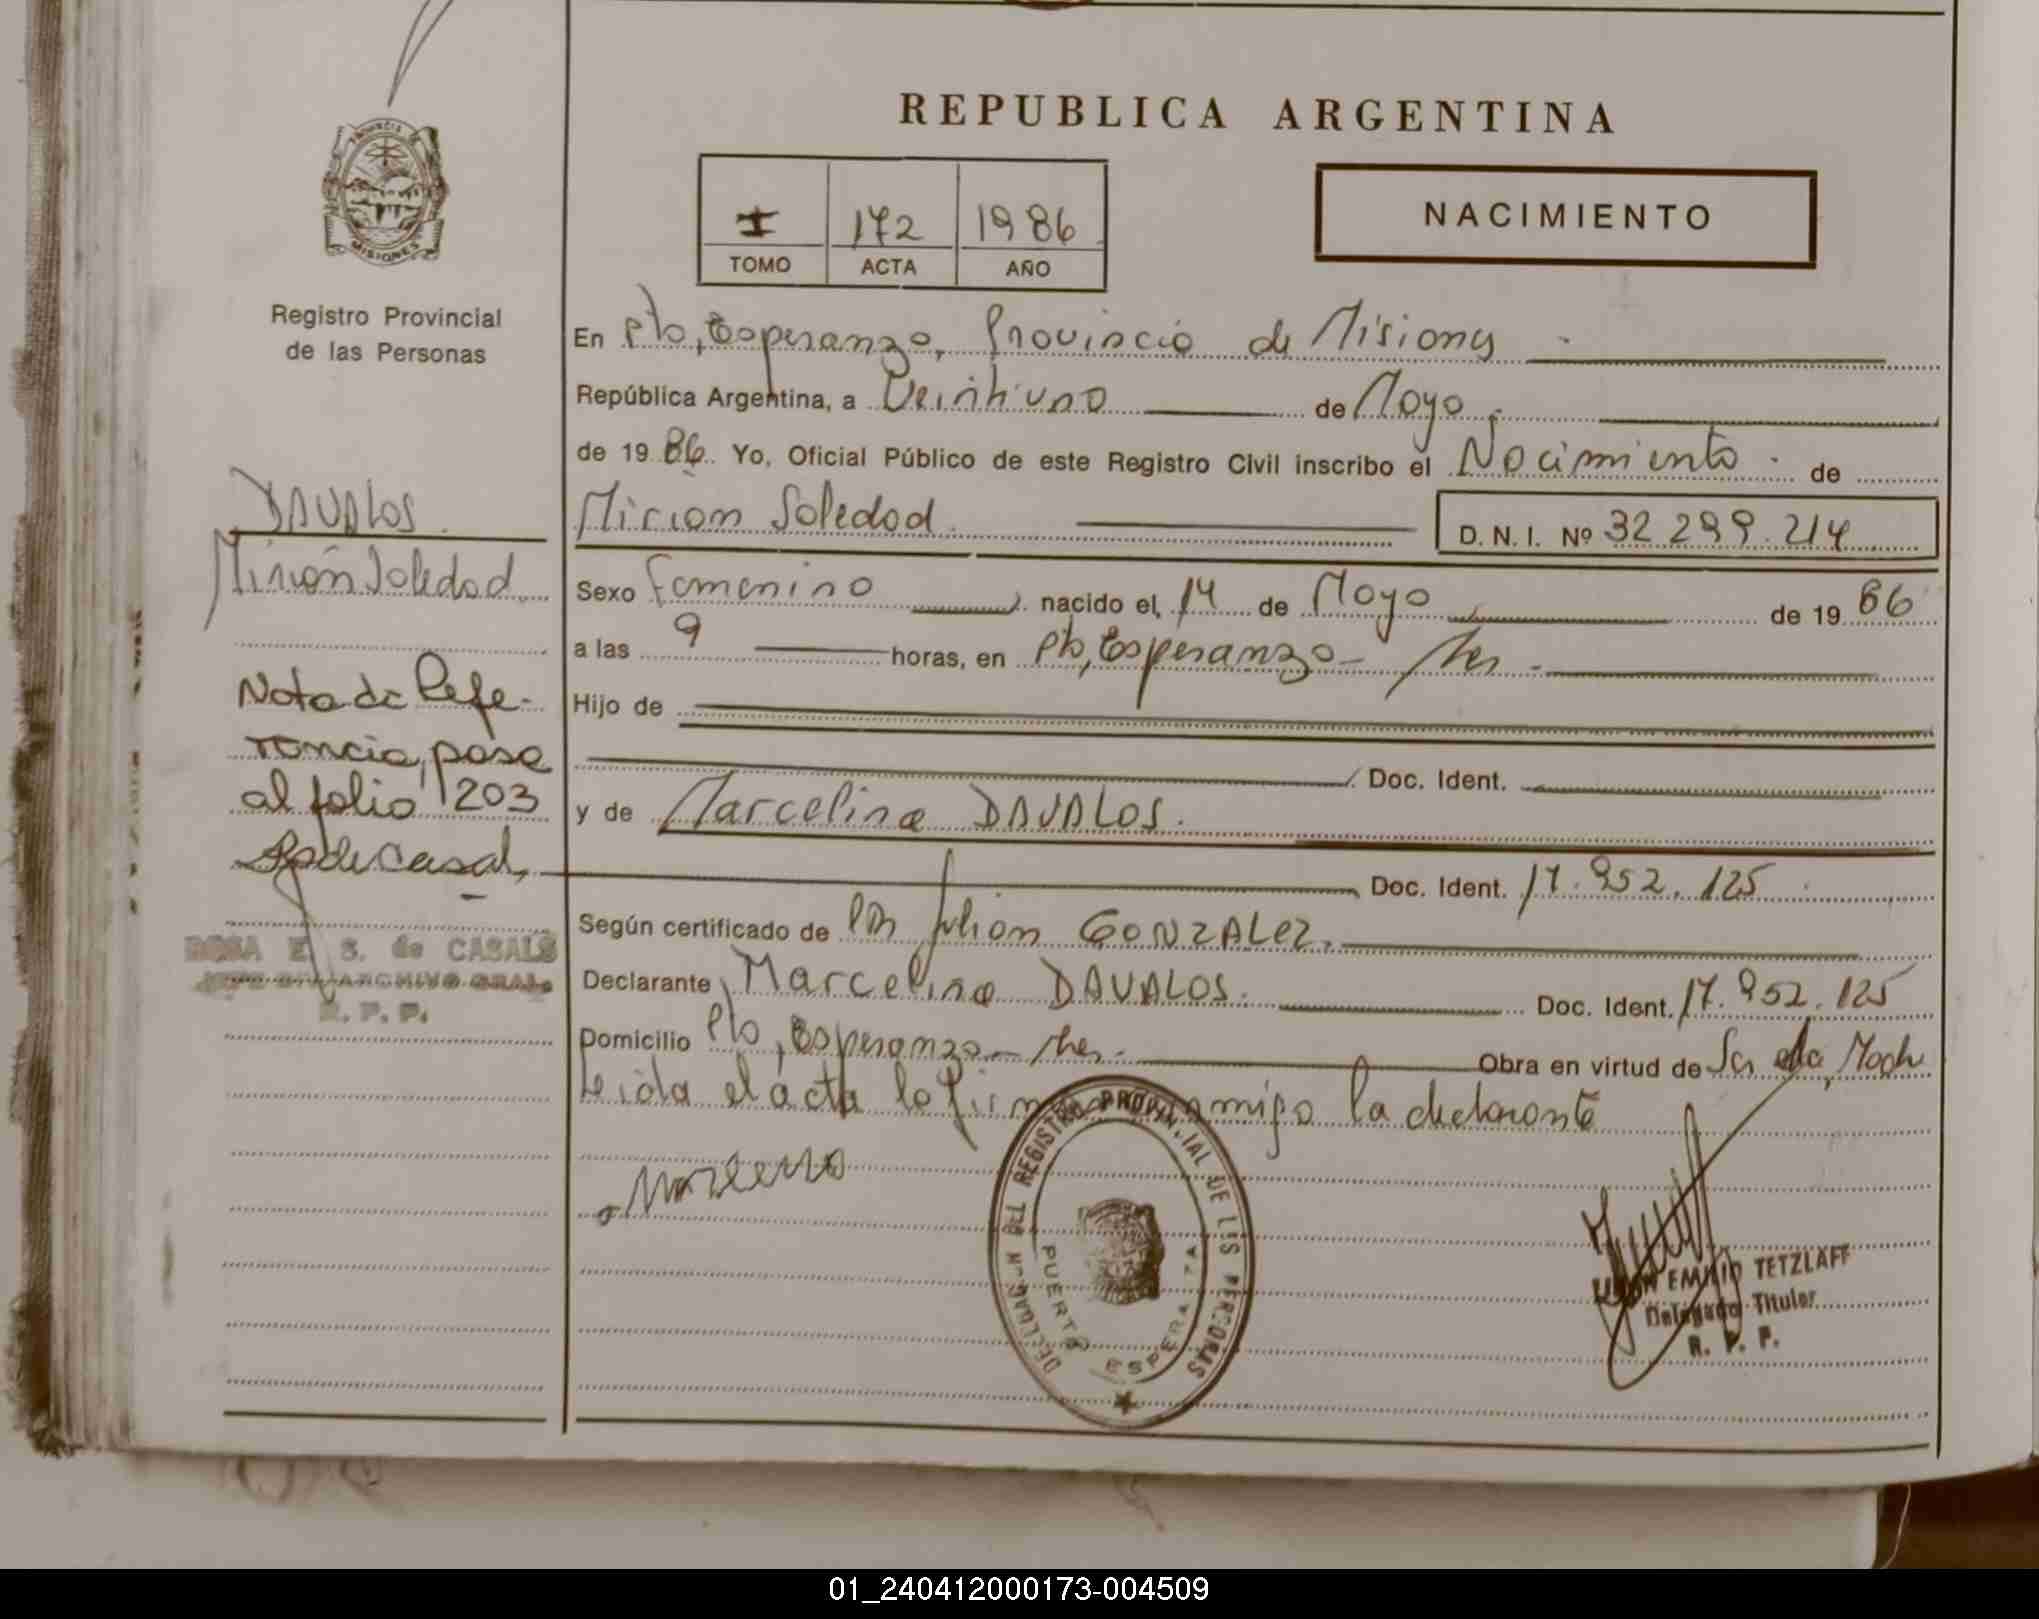 REPUBLICA ARGENTINA
PROVINCIA
MISIONES
Registro Provincial
de las Personas
I 172 1986
TOMO ACTA AÑO
NACIMIENTO
En Pto, Esperanza, Provincia de Misiones
República Argentina, a Veintiuno de Mayo
de 19 86 Yo, Oficial Público de este Registro Civil inscribo el Nacimiento de
Mirian Soledad D. N. I. Nº 32.299.214
Sexo Femenino nacido el, 14 de Mayo de 19 86
a las 9 horas, en Pto, Esperanza - Mnes.
Hijo de
Doc. Ident.
y de Marcelina DAVALOS.
Doc. Ident. 17.952.125
Según certificado de Julian GONZALEZ.
Declarante Marcelina DAVALOS. Doc. Ident. 17.952.125
Domicilio Pto, Esperanza - Mnes. Obra en virtud de
Leida el acta la firma la declarante
DAVALOS
Mirian Soledad
Nota de Refe-
rencia, pasa
al folio 203
ROSA E. S. de CASALS
JEFE DIV. ARCHIVO GRAL.
R. P. P.
DEL REGISTRO PROVINCIAL DE LAS PERSONAS
PUERTO ESPERANZA
EMILIO TETZLAFF
Delegado Titular
R. P. P.
01_240412000173-004509